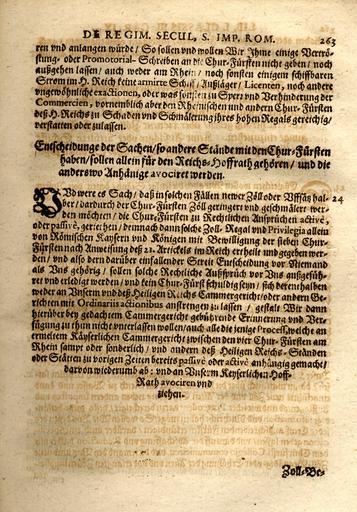 DE REGIM. SECUL, S. IMP. ROM. 263
ren und anlangen würde / So sollen und wollen Wir Ihme einige Vertrö-
stung- oder Promotorial-Schreiben an die Chur-Fürsten nicht geben / noch
außgehen lassen / auch weder am Rhein / noch sonsten einigem schiffbaren
Strom im H. Reich keine armirte Schiff / Außläger / Licenten, noch andere
ungewöhnliche exactionen, oder was sonsten zu Sperr und Verhinderung der
Commercien, vornemblich aber den Rheinischen und andern Chur-Fürsten
deß H. Reichs zu Schaden und Schmälerung ihres hohen Regals gereichig /
verstatten oder zulassen.
Entscheidunge der Sachen / so andere Stände mit den Chur-Fürsten
haben / sollen allein für den Reichs-Hoffrath gehören / und die
anderswo Anhänige avociret werden.
UNd were es Sach / daß in solchen Fällen newer Zöll oder Uffsätz hal- 24
ber / dardurch der Chur-Fürsten Zöll geringert und geschmälert wer-
den möchten / die Chur-Fürsten zu Rechtlichen Ansprüchen activè,
oder passivè, geriethen / dennach dann solche Zoll- Regal und Privilegia allein
von Römischen Keysern und Königen mit Bewilligung der sieben Chur-
Fürsten nach Anweisung deß 21. Artickels im Reich ertheilt und gegeben wer-
den / und also dern darüber einfallender Streit Entscheidung vor Niemand
als Uns gehörig / sollen solche Rechtliche Außspruch vor Uns außgeführt
und erlediget werden / und kein Chur-Fürst schuldig seyn / sich derenhalben
weder an Unserm und deß Heiligen Reichs Cammergericht / oder andern Ge-
richten mit Ordinarii actionibus anstrengen zu lassen / gestalt Wir dann
hierüber bey gedachtem Cammergericht gebührende Erinnerung und Ver-
fügung zu thun nicht unterlassen wollen / auch alle die jenige Process, welche an
ermeltem Käyserlichen Cammergericht zwischen den vier Chur-Fürsten am
Rhein sampt oder sonderlich / und andern deß Heiligen Reichs- Ständen
oder Stätten zu vorigen Zeiten bereits passivè oder activè anhängig gemacht /
darvon wiederumb ab: und an Unsern Keyserlichen Hoff-
Rath avociren und
ziehen.
Zoll-Be-